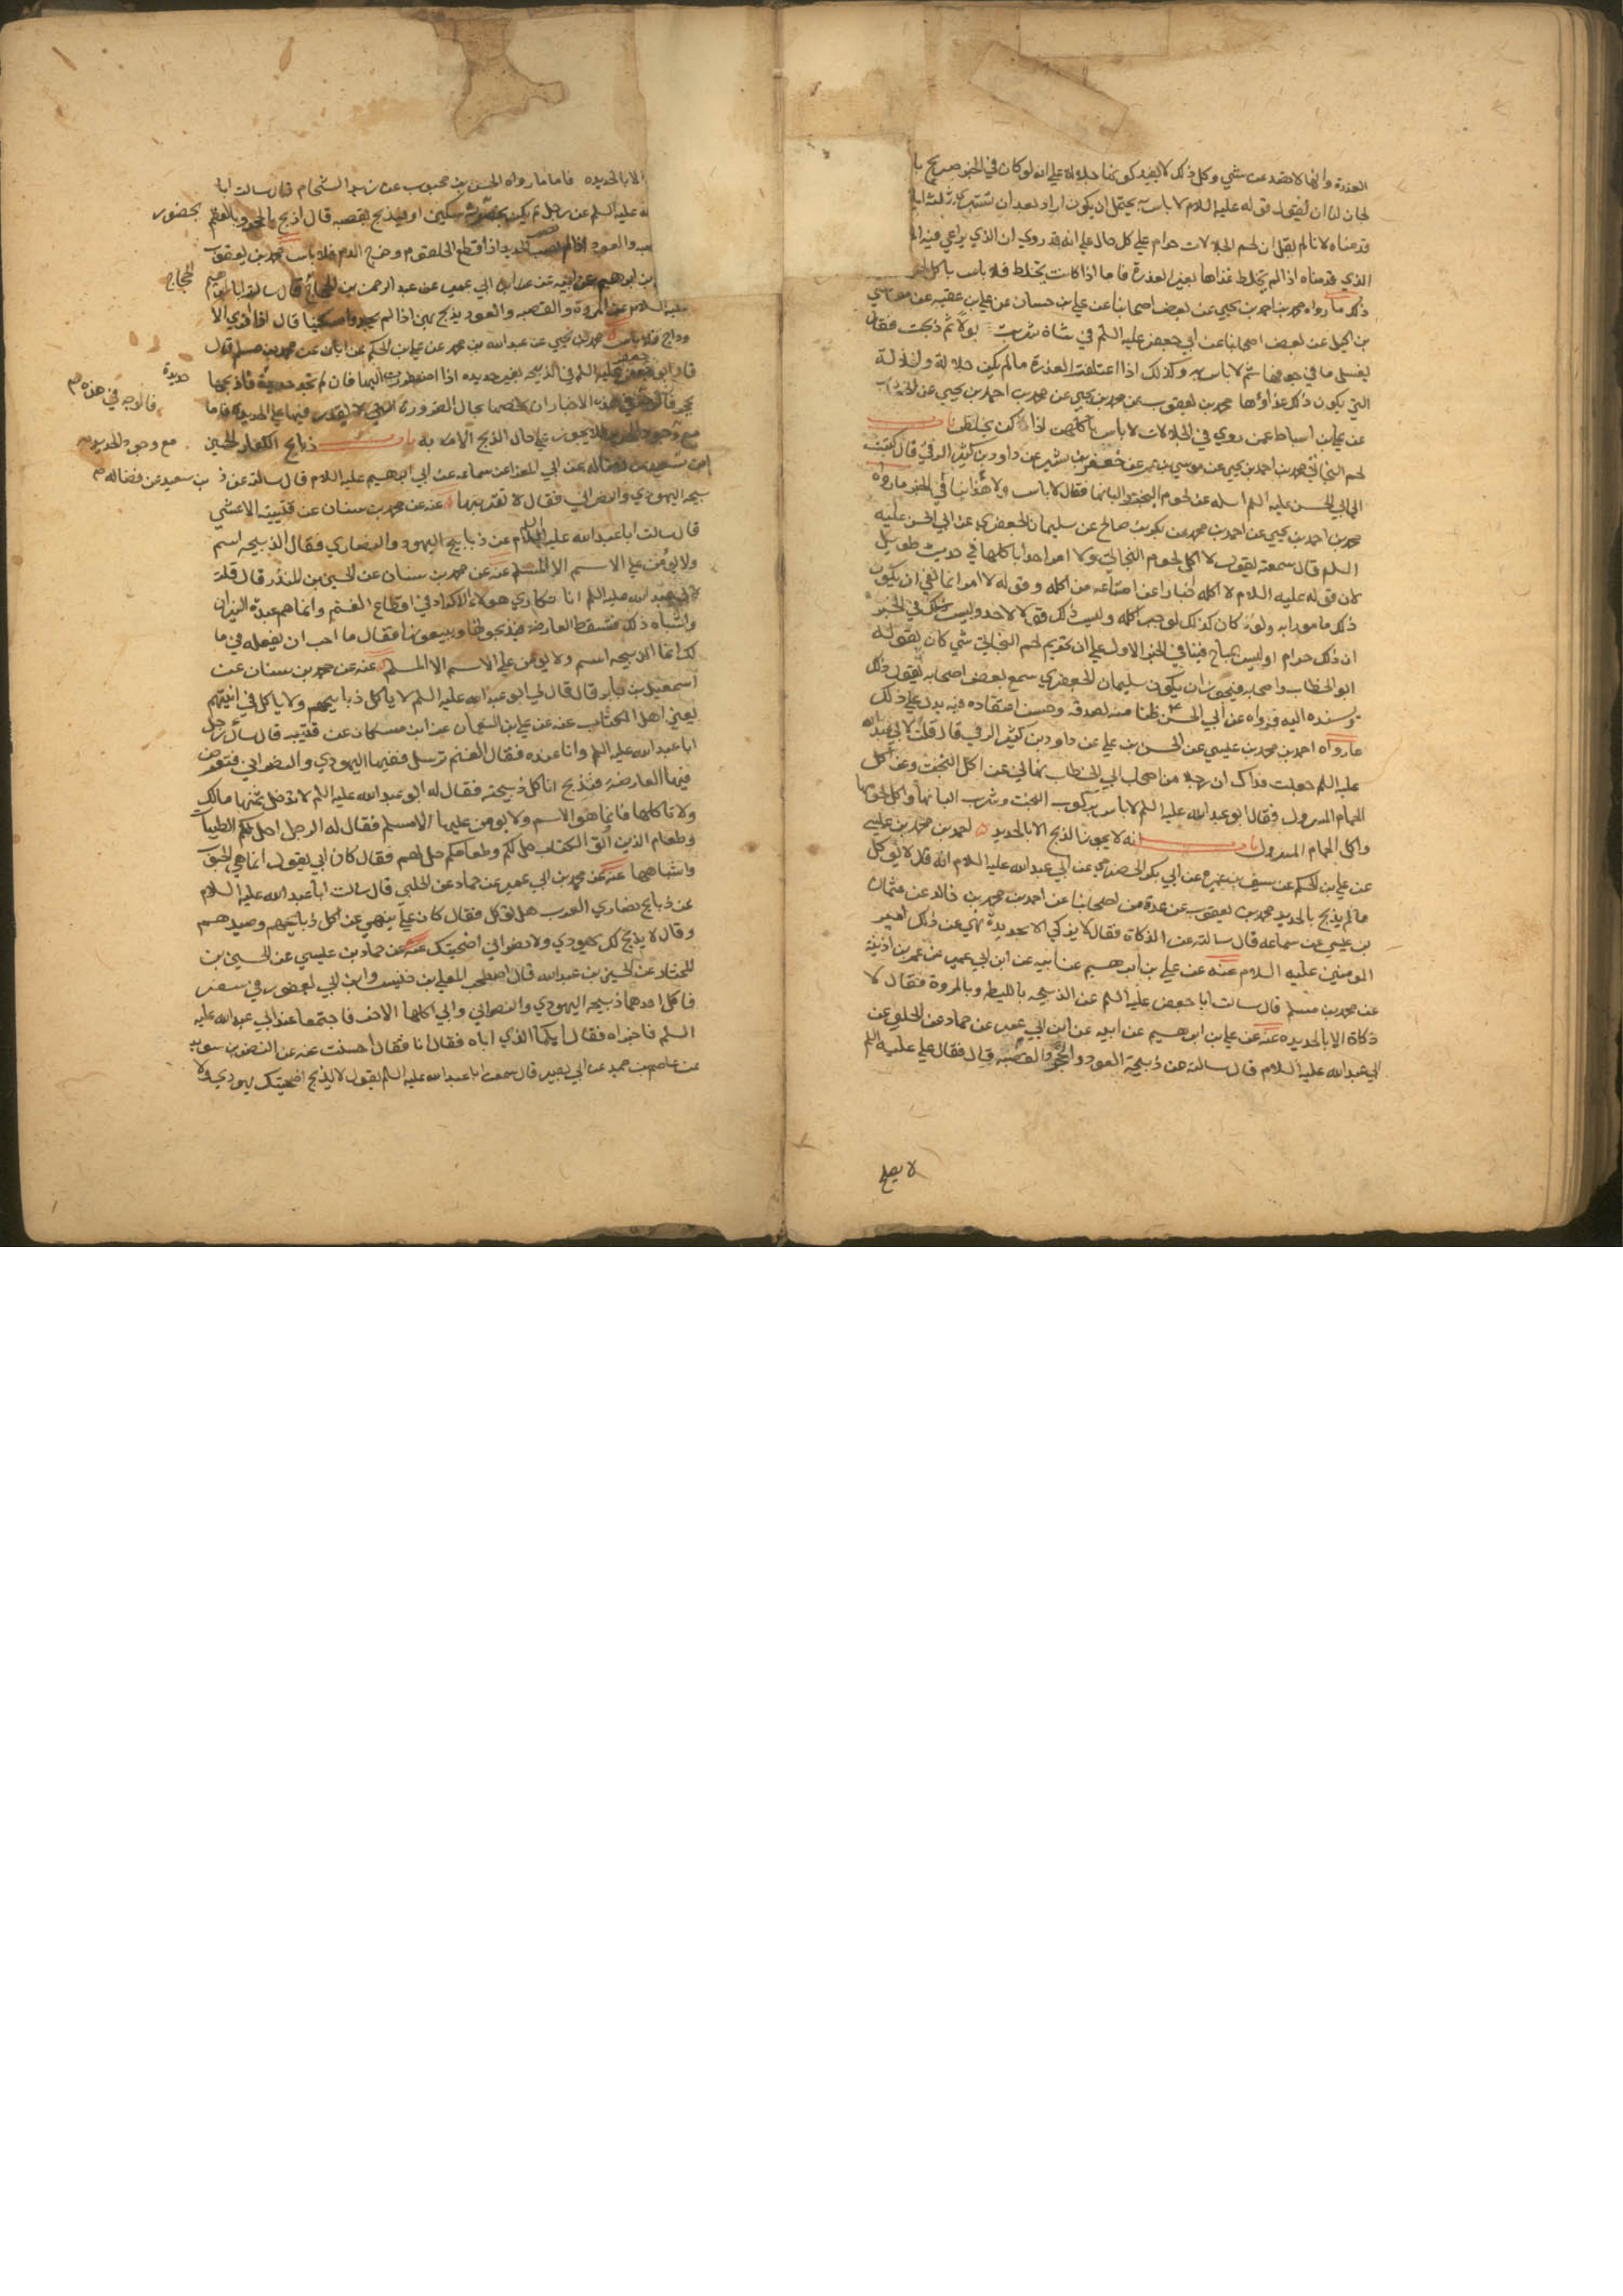 العذرة وانها لا تعتمد عن شي وكل ذلك لا يفيد كونها جلالة علي انه لو كان في الخبر صريح با
لجاز لنا ان نقول قوله عليه السلام لا باس به يحتمل ان يكون اراد بعد ان تستبري ثلثه ايا
قدمناه لانا لم نقل ان لحم الجلالات حرام علي كل حال علي انه قد روي ان الذي يراعي فيه الا
الذي قدمناه اذا لم يخلط غذاها بغير العذرة فاما اذا كانت تخلط فلا باس باكل
ذلك ما رواه محمد بن احمد بن يحيي عن بعض اصحابنا عن علي بن حسان عن علي بن عقبه عن موسي
بن اكيل عن بعض اصحابنا عن ابي جعفر عليه السلم في شاة شربت بولا ثم ذبحت فقال
يغسل ما في جوفها ثم لا باس به وكذلك اذا اعتلفت العذرة ما لم يكن جلالة والجلالة
التي يكون ذلك غذاؤها محمد بن يعقوب عن محمد بن يحيي عن محمد بن احمد بن يحيي عن الخشاب
عن علي بن اسباط عمن روي في الجلالات لا باس باكلهن اذا كن يخلطن باب
لحم البخاتي محمد بن احمد بن يحيي عن موسي بن عمر عن جعفر بن بشير عن داود بن كثير الرقي قال كتبت
الي ابي الحسن عليه السلم اساله عن لحوم البخت والبانها فقال لا باس ولا هذا ينافي الخبر ما رواه
محمد بن احمد بن يحيي عن احمد بن محمد عن بكر بن صالح عن سليمان الجعفري عن ابي الحسن عليه
السلم قال سمعته يقول لا اكل لحوم البخاتي ولا امر احدا باكلها في حديث طويل
لان قوله عليه السلام لا اكله اخبارا عن امتناعه من اكله وقوله لا امر انما نفي ان يكون
ذلك مامورا به ولو كان كذلك لوجب اكله وليس ذلك قولا لاحد وليس ذلك في الخبر
ان ذلك حرام او ليس بمباح فينافي الخبر الاول علي ان تحريم لحم البخاتي شي كان يقوله
ابو الخطاب واصحابه فيجوز ان يكون سليمان الجعفري سمع بعض اصحابه يقول ذلك
ويسنده اليه فرواه عن ابي الحسن ع ظنا منه لصدقه وحسن اعتقاده فيه يدل علي ذلك
ما رواه احمد بن محمد بن عيسي عن الحسن بن علي عن داود بن كثير الرقي قال قلت لابي عبد الله
عليه السلم جعلت فداك ان رجلا من اصحاب ابي الخطاب نهاني عن اكل البخت وعن اكل
الحمام المسرول فقال ابو عبد الله عليه السلم لا باس بركوب البخت وشرب البانها واكل لحومها
واكل الحمام المسرول باب انه لا يجوز الذبح الا بالحديد احمد بن محمد بن عيسي
عن علي بن الحكم عن سيف بن عميرة عن ابي بكر الحضرمي عن ابي عبد الله عليه السلام انه قال لا يؤكل
ما لم يذبح بالحديد محمد بن يعقوب عن عدة من اصحابنا عن احمد بن محمد بن خالد عن عثمان
بن عيسي عن سماعه قال سالته عن الذكاة فقال لا يذكي الا بحديدة نهي عن ذلك امير
المومنين عليه السلام عنه عن علي بن ابرهيم عن ابيه عن ابن ابي عمير عن عمر بن اذينة
عن محمد بن مسلم قال سالت ابا جعفر عليه السلم عن الذبيحه بالليطه وبالمروة فقال لا
ذكاة الا بالحديده عنه عن علي بن ابرهيم عن ابيه عن ابن ابي عمير عن حماد عن الحلبي عن
ابي عبد الله عليه السلام قال سالته عن ذبيحة العود والحجر والقصبه قال فقال علي عليه السلم
لا يصلح
الا بالحديده فاما ما رواه الحسن بن محبوب عن زيد الشحام قال سالت ابا
لله عليه السلم عن رجل لم يكن بحضرته سكين او يذبح بقصبه قال اذبح بالحجر وبالعظم
بحضور
صبه والعود اذا لم تصب الحديد اذا قطع الحلقوم وخرج الدم فلا باس محمد بن يعقوب
بن ابرهيم عن ابيه عن ابن ابي عمير عن عبد الرحمن بن الحجاج قال سالت ابا ابرهيم
الحجاج
عليه السلام عن المروة والقصبه والعود يذبح بهن اذا لم يجدوا سكينا قال اذا فري الا
وداج فلا باس محمد بن يحيي عن عبد الله بن محمد عن علي بن الحكم عن ابان عن محمد بن مسلم قال
قال ابو جعفر عليه السلم في الذبيحه بغير حديده اذا اضطررت اليها فان لم تجد حديدة فاذبحها
حديدة
بحجر فالوجه في هذه الاخبار ان نخصها بحال الضرورة التي لا يقدر فيها علي الحديده فاما
فالوجه في هذه
مع وجود الحديد فلا يجوز علي حال الذبح الا به باب ذبايح الكفار الحسين
مع وجود الحديد
بن سعيد عن فضاله عن ابي المعزا عن سماعه عن ابي ابرهيم عليه السلام قال سالته عن ذ
بن سعيد عن فضاله
بيحه اليهودي والنصراني فقال لا تقربنها عنه عن محمد بن سنان عن قتيبه الاعشي
قال سالت ابا عبد الله عليه السلام عن ذبايح اليهود والنصاري فقال الذبيحه اسم
ولا يؤمن علي الاسم الا المسلم عنه عن محمد بن سنان عن الحسين بن المنذر قال قلت
لابي عبد الله عليه السلم انا نتكاري هولاء الاكراد في اقطاع الغنم وانما هم عبدة النيران
واشباه ذلك فتسقط العارضة فيذبحونها ويبيعونها فقال ما احب ان يفعله في ما
لك انما الذبيحه اسم ولا يومن علي الاسم الا المسلم عنه عن محمد بن سنان عن
اسمعيل بن جابر قال قال لي ابو عبد الله عليه السلم لا ياكل ذبايحهم ولا ياكل في انيتهم
يعني اهل الكتاب عنه عن علي بن النعمان عن ابن مسكان عن قتيبه قال سال رجل
ابا عبد الله عليه السلم وانا عنده فقال الغنم ترسل ففيها اليهودي والنصراني فتعرض
فيها العارضة فتذبح اناكل ذبيحته فقال له ابو عبد الله عليه السلم لا تدخل ثمنها مالك
ولا تاكلها فانما هو الاسم ولا يومن عليها الا مسلم فقال له الرجل احل لكم الطيبات
وطعام الذين اوتوا الكتاب حل لكم وطعامكم حل لهم فقال كان ابي يقول انما هي الحبوب
واشباهها عنه عن محمد بن ابي عمير عن حماد عن الحلبي قال سالت ابا عبد الله عليه السلام
عن ذبايح نصاري العرب هل توكل فقال كان علي ينهي عن اكل ذبايحهم وصيدهم
وقال لا يذبح لك يهودي ولا نصراني اضحيتك عنه عن حماد بن عيسي عن الحسين بن
المختار عن الحسين بن عبد الله قال اصطحب المعلي بن خنيس وابن ابي يعفور في سفر
فاكل احدهما ذبيحه اليهودي والنصراني وابي اكلها الاخر فاجتمعا عند ابي عبد الله عليه
السلم فاخبراه فقال ايكما الذي اباه فقال انا فقال احسنت عنه عن النضر بن سويد
عن عاصم بن حميد عن ابي بصير قال سمعت ابا عبد الله عليه السلم يقول لا يذبح اضحيتك يهودي ولا